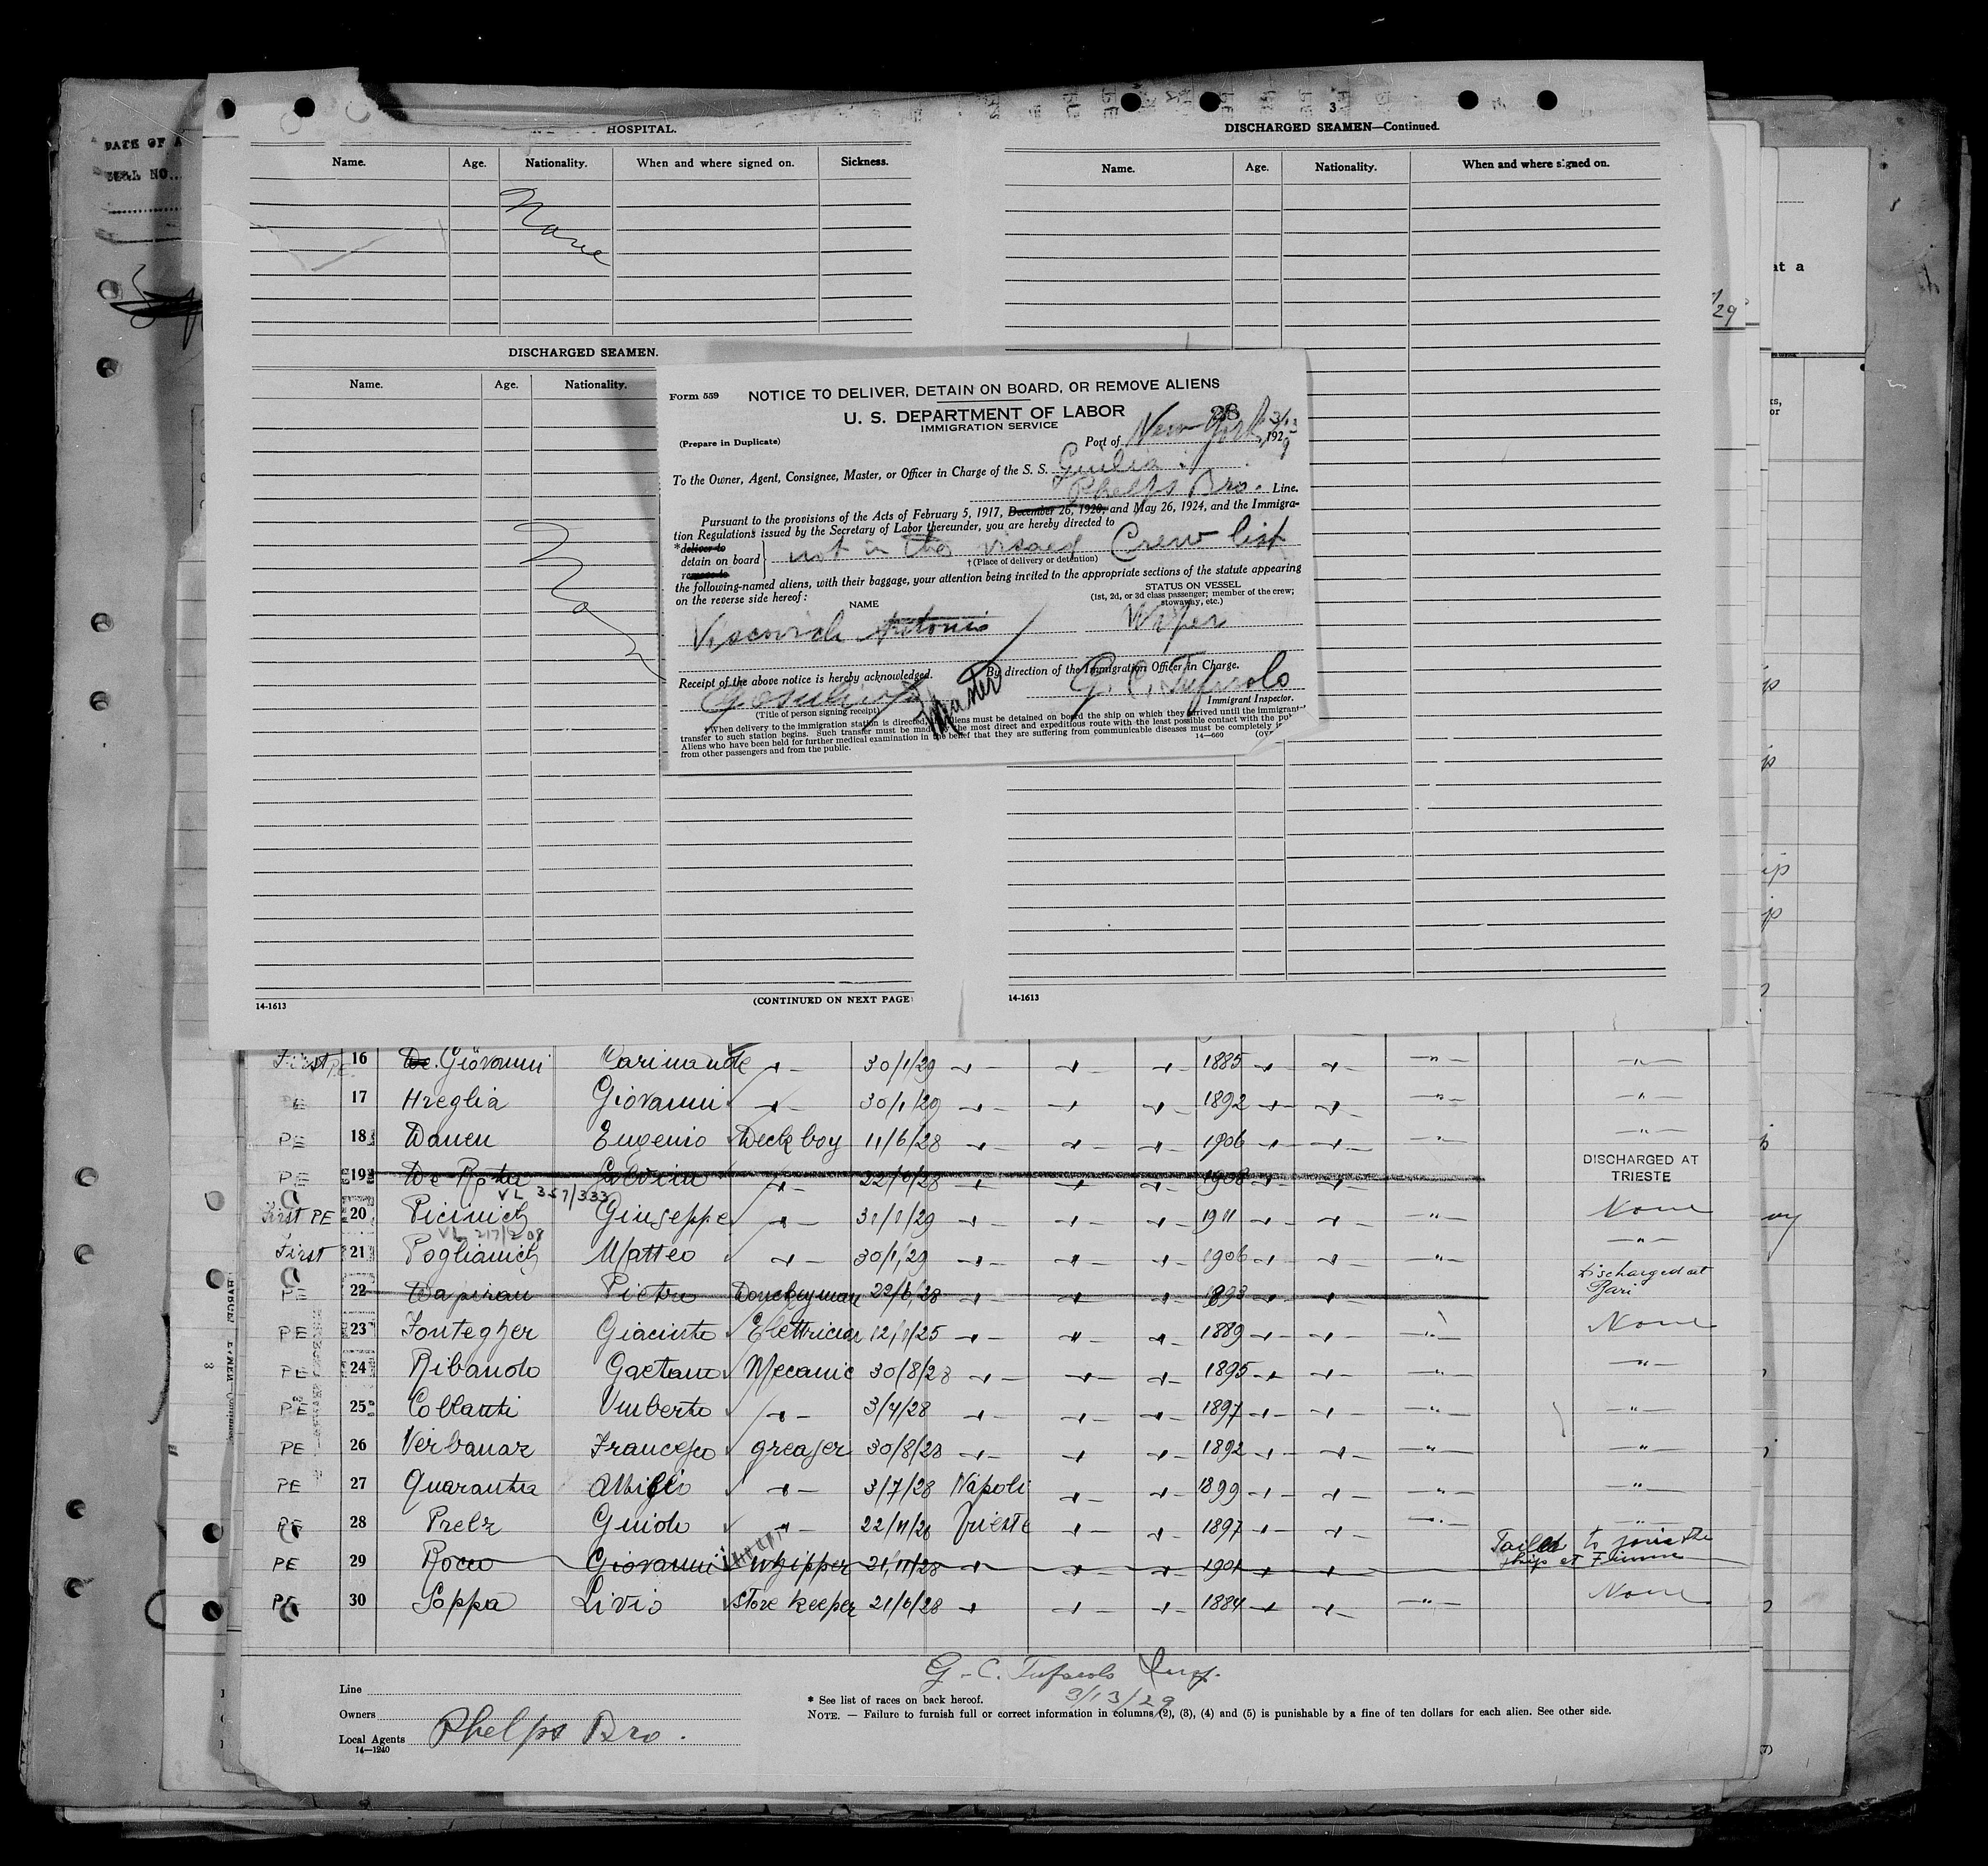 DATE OF A
HOSPITAL.
Name. Age. Nationality. When and where signed on. Sickness.
None
DISCHARGED SEAMEN.
Name. Age. Nationality.
14-1613 (CONTINUED ON NEXT PAGE
3
DISCHARGED SEAMEN—Continued.
Name. Age. Nationality. When and where signed on.
14-1613
at a
/29
Form 559 NOTICE TO DELIVER, DETAIN ON BOARD, OR REMOVE ALIENS
U. S. DEPARTMENT OF LABOR
IMMIGRATION SERVICE
(Prepare in Duplicate)
Port of New York 3/13, 1929
To the Owner, Agent, Consignee, Master, or Officer in Charge of the S. S. Guilia
Phelps Bro. Line.
Pursuant to the provisions of the Acts of February 5, 1917, December 26, 1920, and May 26, 1924, and the Immigra-
tion Regulations issued by the Secretary of Labor thereunder, you are hereby directed to
*deliver to
detain on board not in the visaed Crew list
remove to †(Place of delivery or detention)
the following-named aliens, with their baggage, your attention being invited to the appropriate sections of the statute appearing
on the reverse side hereof:
NAME STATUS ON VESSEL
(1st, 2d, or 3d class passenger; member of the crew;
stowaway, etc.)
Viscovich Antonio Wiper
Receipt of the above notice is hereby acknowledged. By direction of the Immigration Officer in Charge.
Master G. C. Tufarolo
(Title of person signing receipt) Immigrant Inspector.
†When delivery to the immigration station is directed, aliens must be detained on board the ship on which they arrived until the immigrant
transfer to such station begins. Such transfer must be made the most direct and expeditious route with the least possible contact with the pub
Aliens who have been held for further medical examination in the belief that they are suffering from communicable diseases must be completely
from other passengers and from the public. 14—660
First PE 16 De Giovanni 30/1/29 1885
17 Hreglia Giovanni 30/1/29 1892
PE 18 Daneu Eugenio Deck boy 11/6/28 1906
PE 19 De Rota 22/6/28 1908 DISCHARGED AT
TRIESTE
VL 357/333
First PE 20 Picinich Giuseppe 31/1/29 1911 None
VL 217/208
First 21 Poglianich Matteo 30/1/29 1906
PE 22 Dapiran Pietro Donkeyman 22/6/28 1893 Discharged at
Bari
PE 23 Fontegher Giacinto Elettrician 12/1/25 1889 None
PE 24 Ribaudo Gaetano Mecanic 30/8/28 1895
PE 25 Collanti Umberto 3/4/28 1897
PE 26 Verbanaz Francesco greaser 30/8/28 1892
PE 27 Quaranta Attilio 3/7/28 Napoli 1899
PE 28 Prelz Guido 22/11/28 Trieste 1897
PE 29 Rocco Giovanni Whipper 21/11/28 1901 Failed to join the
ship at Fiume
PE 30 Soppa Livio Store Keeper 21/6/28 1884 None
G. C. Tufarolo Insp.
3/13/29
Line
Owners
Local Agents Phelps Bro.
14—1240
* See list of races on back hereof.
NOTE. — Failure to furnish full or correct information in columns (2), (3), (4) and (5) is punishable by a fine of ten dollars for each alien. See other side.